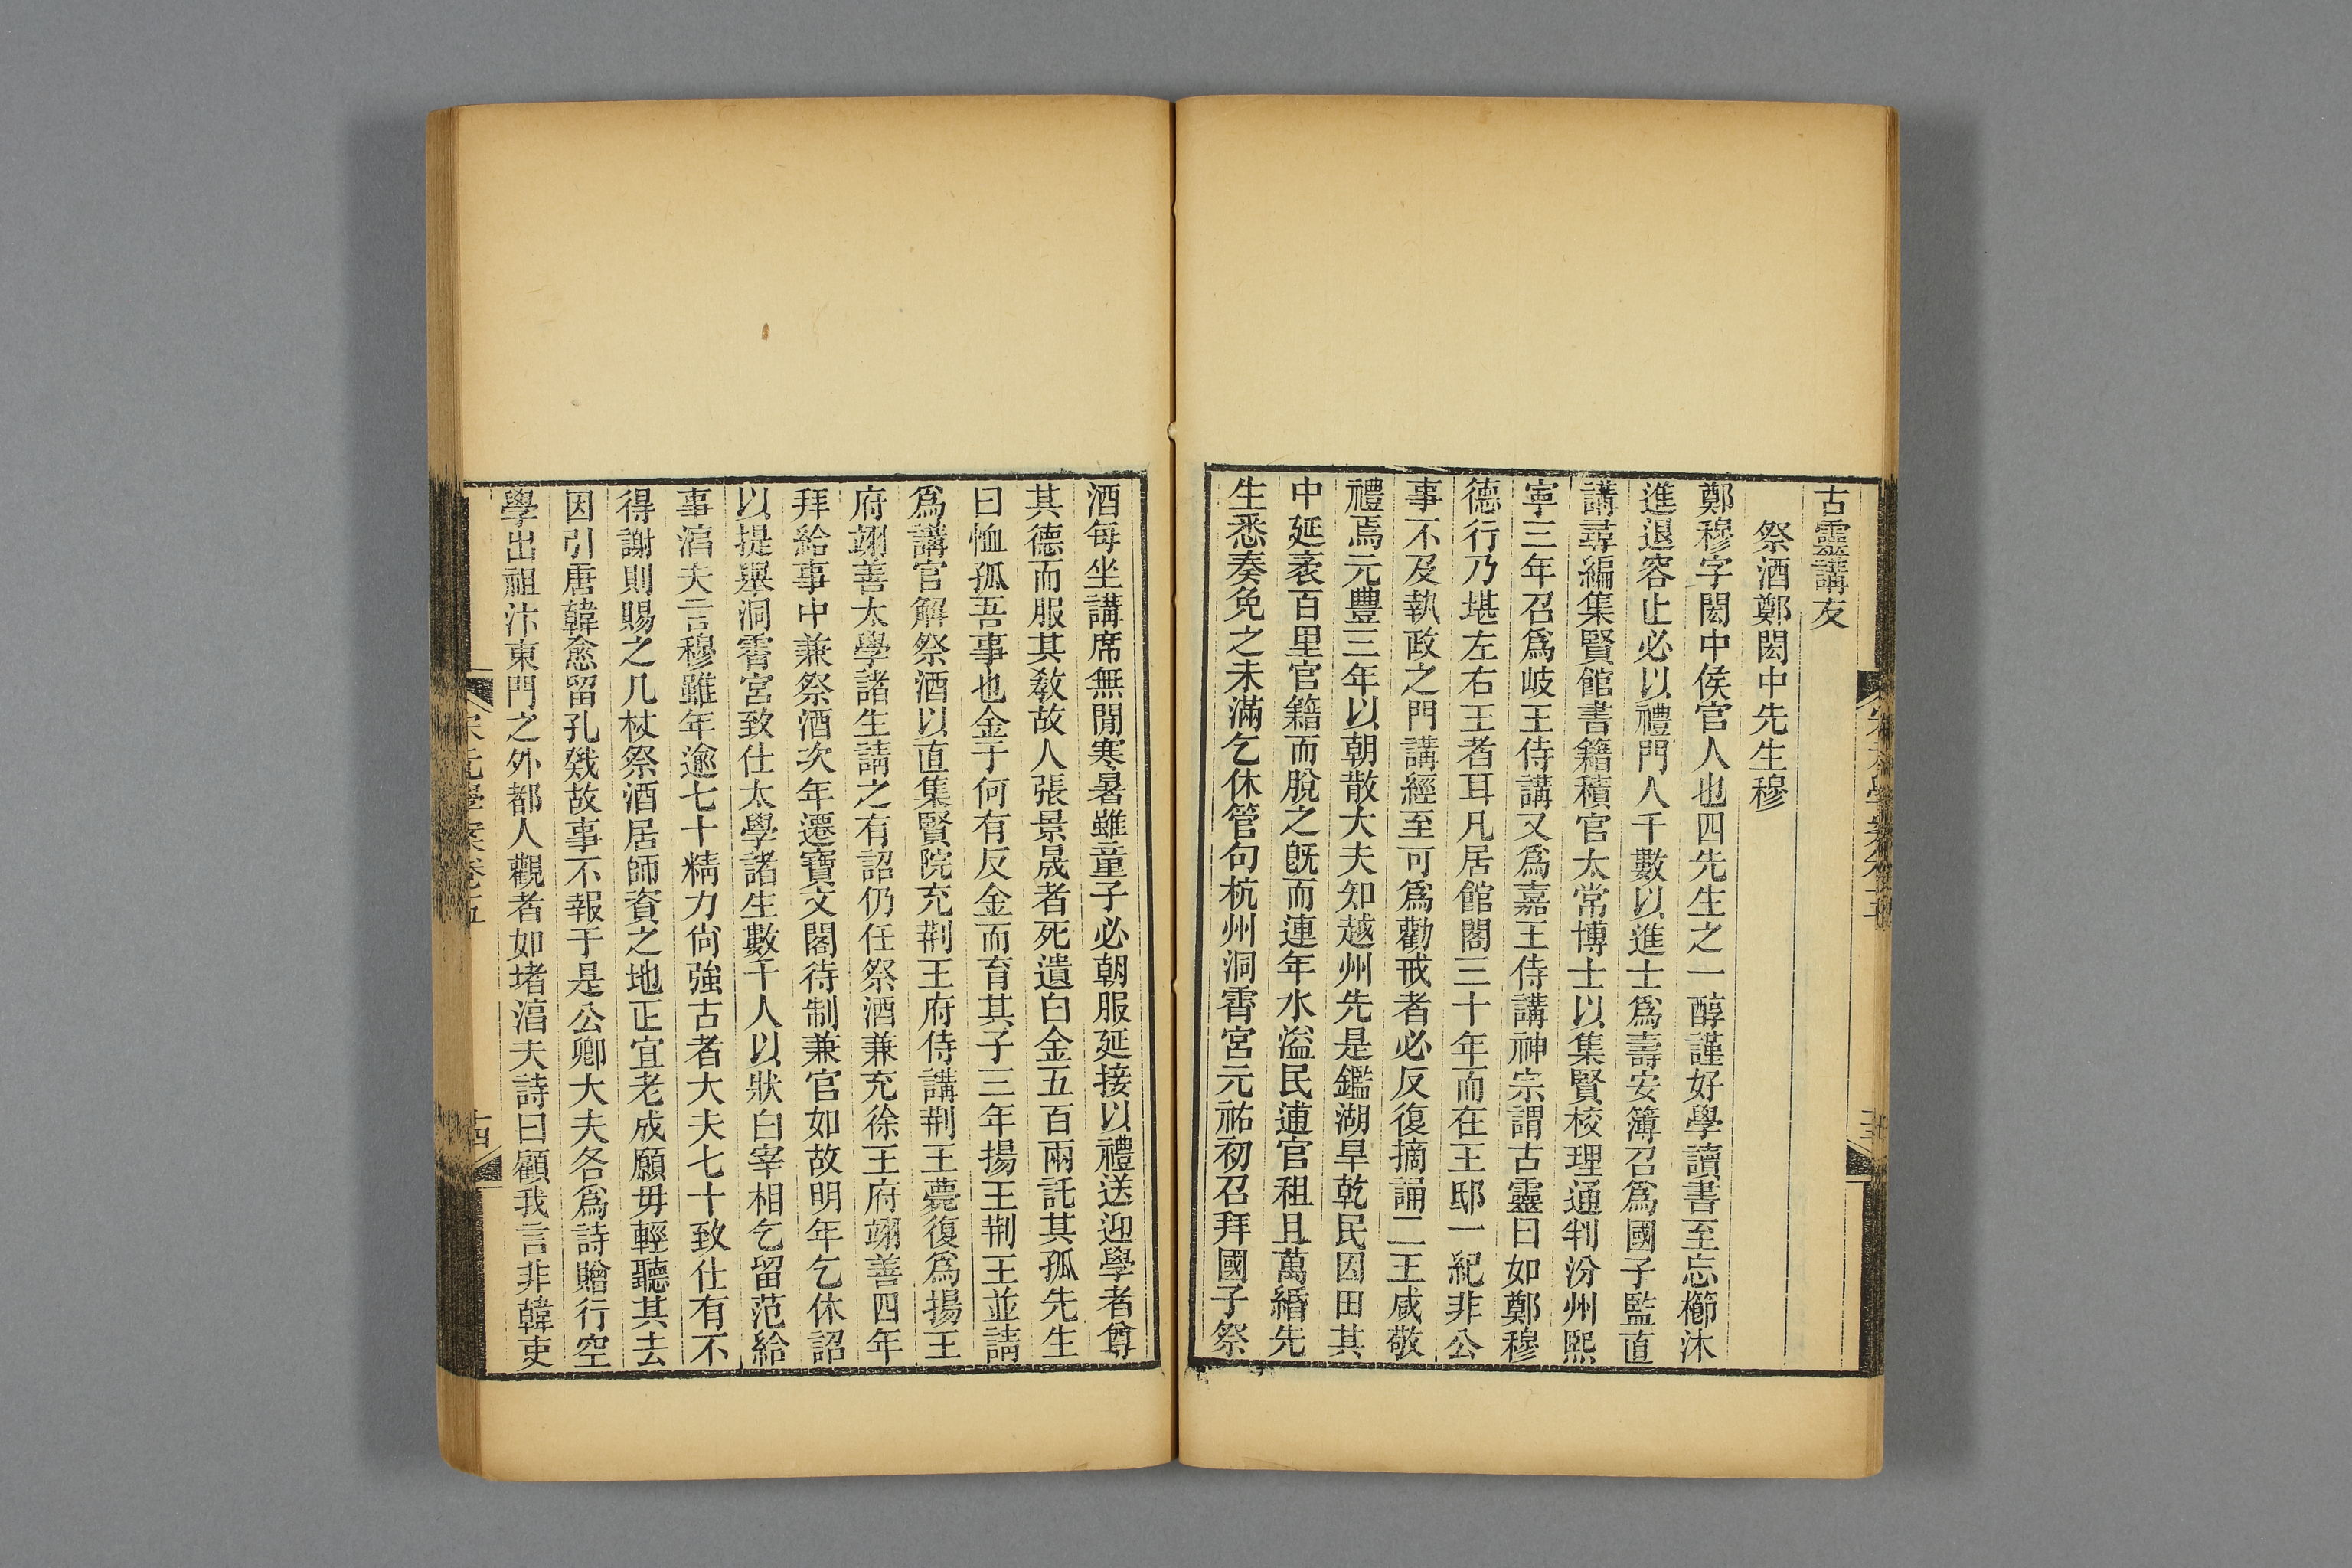 古靈講友
祭酒鄭閎中先生穆
鄭穆字閎中侯官人也四先生之一醇謹好學讀書至忘櫛沐
進退容止必以禮門人千數以進士爲壽安簿召爲國子監直
講尋編集賢館書籍積官太常博士以集賢校理通判汾州熙
寧三年召爲岐王侍講又爲嘉王侍講神宗謂古靈曰如鄭穆
德行乃堪左右王者耳凡居館閣三十年而在王邸一紀非公
事不及執政之門講經至可爲勸戒者必反復摘誦二王咸敬
禮焉元豐三年以朝散大夫知越州先是鑑湖旱乾民因田其
中延袤百里官籍而脫之旣而連年水溢民逋官租且萬緡先
生悉奏免之未滿乞休管句杭州洞霄宮元祐初召拜國子祭
酒每坐講席無閒寒暑雖童子必朝服延接以禮送迎學者尊
其德而服其敎故人張景晟者死遺白金五百兩託其孤先生
曰恤孤吾事也金于何有反金而育其子三年揚王荆王並請
爲講官解祭酒以直集賢院充荆王府侍講荆王薨復爲揚王
府翊善太學諸生請之有詔仍任祭酒兼充徐王府翊善四年
拜給事中兼祭酒次年遷寶文閣待制兼官如故明年乞休詔
以提舉洞霄宮致仕太學諸生數千人以狀白宰相乞留范給
事淊夫言穆雖年逾七十精力尙強古者大夫七十致仕有不
得謝則賜之几杖祭酒居師資之地正宜老成願毋輕聽其去
因引唐韓愈留孔戣故事不報于是公卿大夫各爲詩贈行空
學出祖汴東門之外都人觀者如堵淊夫詩曰顧我言非韓吏
宋元學案卷五
十四